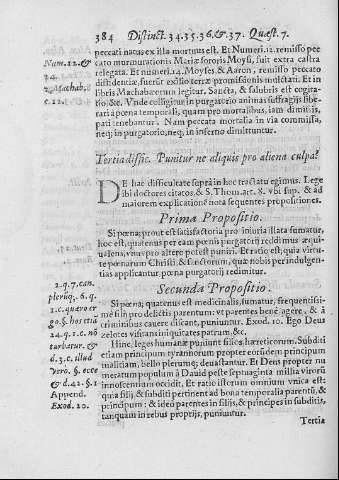 384 Distinct. 34. 35. 36. & 37. Quæst. 7.
peccati natus ex illa mortuus est. Et Numeri. 12. remisso pec
cato murmurationis Mariæ sororis Moysi, fuit extra castra
relegata. Et numeri. 14. Moyses, & Aaron, remisso peccato
diffidentiæ, fuerũt exilio terræ promissionis multati. Et in
libris Machabæorum legitur. Sancta, & salubris est cogita-
tio, &c. Vnde colligitur in purgatorio animas suffragijs libe-
rari à pœna temporali, quam pro mortalibus, iam dimissis,
pati tenebantur. Nam peccata mortalia in via commissa,
neq; in purgatorio, neq; in inferno dimittuntur.
Num. 12. &
14.
2. Machab.
c. 12.
Tertia diffic. Punitur ne aliquis pro aliena culpa?
DE hac difficultate suprà in hoc tractatu egimus. Lege
ibi doctores citatos. & S. Thom. art. 8. vbi sup. & ad
maiorem explicationẽ nota sequentes propositiones.
Prima Propositio.
Si pœna; prout est satisfactoria pro iniuria illata sumatur,
hoc est, quatenus per eam pœnis purgatorij reddimus æqui-
ualens, vnus pro altero potest puniri. Et ratio est, quia virtu-
te pœnarum Christi, & sanctorum, quæ nobis per indulgen-
tias applicantur, pœna purgatorij redimitur.
Secunda Propositio.
Si pœna; quatenus est medicinalis, sumatur, frequentissi-
mè filij pro delictis parentum: vt parentes benè agere, & à
criminibus cauere discant, puniuntur. Exod. 10. Ego Deus
zelotes visitans iniquitates patrum. &c.
Hinc, leges humanæ puniunt filios hæreticorum. Subditi
etiam principum tyrannorum propter eorũdem principum
malitiam, bello plerumq; deuastantur. Et Deus propter nu
meratum populum à Dauid peste septuaginta millia virorũ
innocentium occidit. Et ratio istorum omnium vnica est:
quia filij, & subditi pertinent ad bona temporalia parentũ, &
principum: & ideò parentes in filijs, & principes in subditis,
tanquam in rebus proprijs, puniuntur.
2. q. 7. can.
plerũq. 6. q.
1. c. quæro er
go. § hos etiã
24. q. 1. c. nõ
turbatur. &
d. 3. c. illud
vero. § ecce
& d. 42. § 1
Append.
Exod. 20.
Tertia